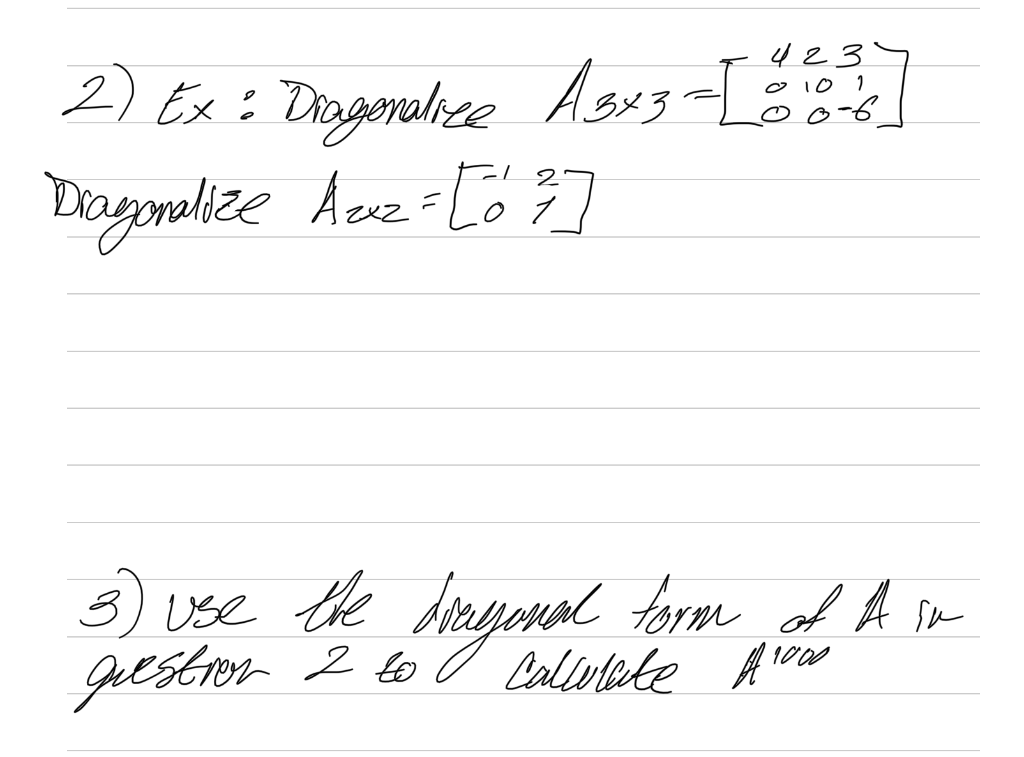 2) Ex : Diagonalize A3x3 = [4 2 3
0 10 1
0 0 -6]
Diagonalize A2x2 = [-1 2
0 1]
3) use the diagonal form of A in
question 2 to calculate A^1000